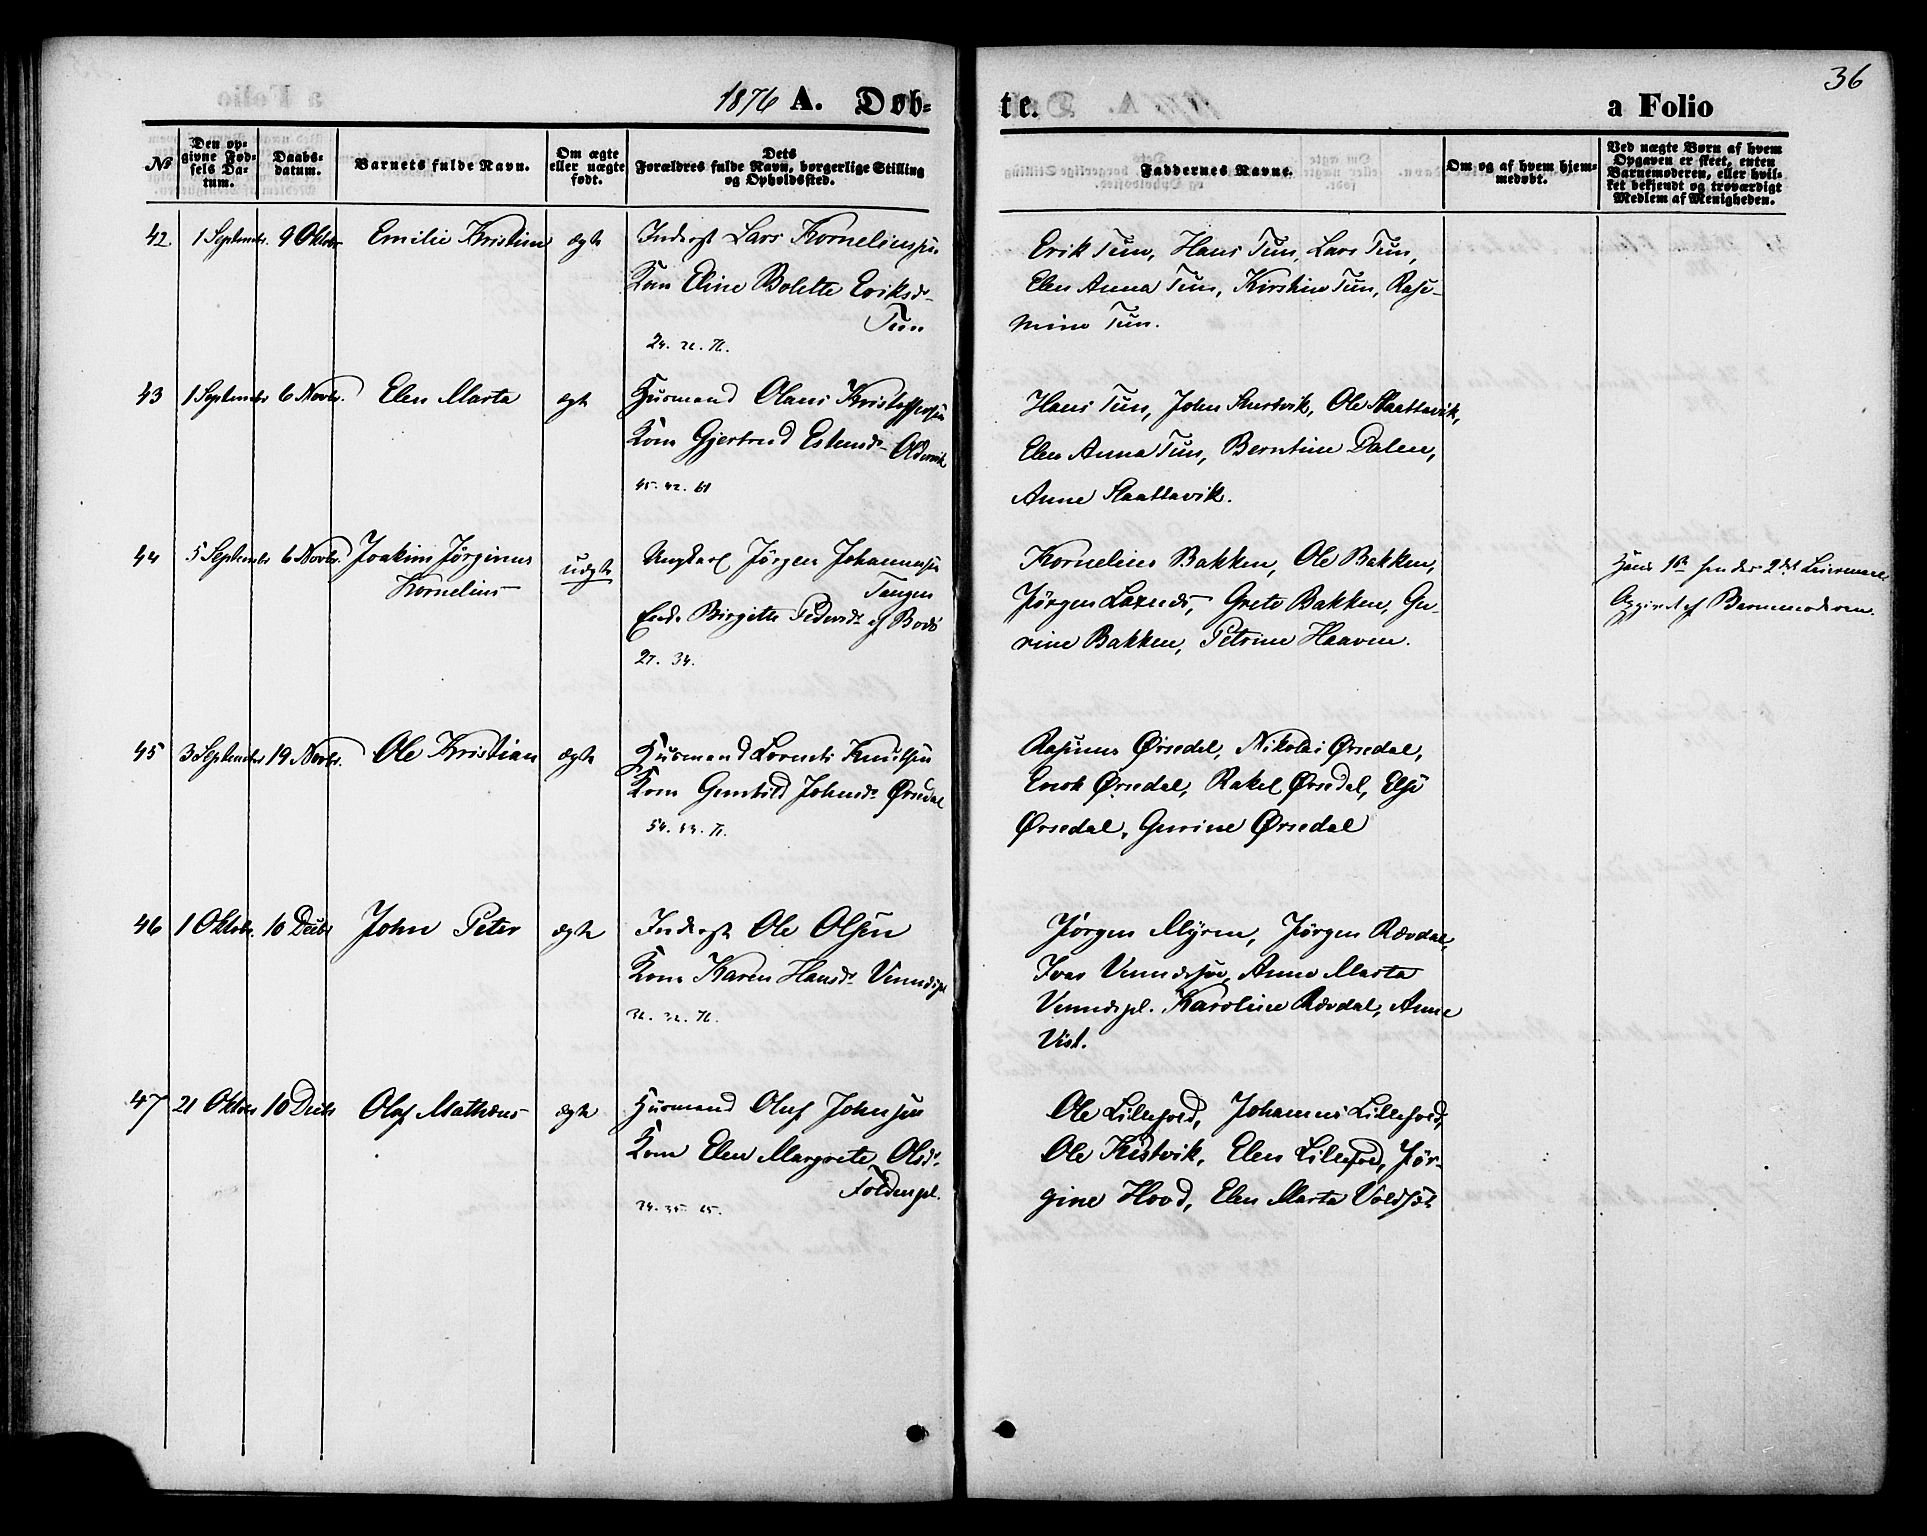 1876 A. Døb-
te.
a Folio
36
No
Den op-
givne Fød-
sels Da-
tum.
Daabs-
datum.
Barnets fulde Navn.
Om ægte
eller uægte
født.
Dets
Forældres fulde Navn, borgerlige Stilling
og Opholdssted.
Faddernes Navne.
Om og af hvem hjem-
medøbt.
Ved uægte Børn af hvem
Opgaven er skeet, enten
Barnemoderen, eller hvil-
ket bekjendt og troværdigt
Medlem af Menigheden.
42 1 Septembr. 9 Oktobr Emilie Kristine ægte Inderst Lars Korneliussen
Kone Eline Bolette Eriksdr
Tun
Erik Tun, Hans Tun, Lars Tun,
Elen Anna Tun, Kirstine Tun, Rasi-
mine Tun.
43 1 Septembr 6 Novbr. Elen Marta ægte Husmand Olaus Kristoffersen
Kone Gjertrud Estensdr Oldervik
45. 42. 61
Hans Tun, John, Ole Slaattavik,
Elen Anna Tun, Berntine Dalen,
Anne Slaattavik.
44 5 Septembr 6 Novbr. Joakim Jørginus
Kornelius
uægte
Ungkarl Jørgen Johannessen
Tangen
Enke Birgitte Pedersdr af Bodø
27. 34.
Kornelius Bakken, Ole Bakken,
Jørgen, Grete Bakken, Gu-
rine Bakken, Petrine Haaven.
Hans 1ste hendes 2det Leiermaal.
Opgivet af Barnemoderen.
45 3 September 19 Novbr. Ole Kristian ægte Husmand Lorents Knutsen
Kone Gunhild Johnsdr Ørsedal
Rasmus Ørsedal, Nikolai Ørsedal,
Enok Ørsedal, Rakel Ørsedal, Else
Ørsedal, Gurine Ørsedal
46 1 Oktobr. 10 Decbr John Peter ægte Inderst Ole Olsen
Kone Karen Hansdr
Jørgen Myren, Jørgen Rævdal,
Ivar, Anne Marta
Karoline Rævdal, Anne
Vist.
47 21 Oktober 10 Decbr Oluf Mathæus ægte Husmand Oluf Johnsen
Kone Elen Margrete Olsdr
Foldenpl.
Ole Lillefold, Johannes Lillefold,
Ole Kistvik, Elen Lillefold, Jør-
gine Hovd, Elen Marta Voldset